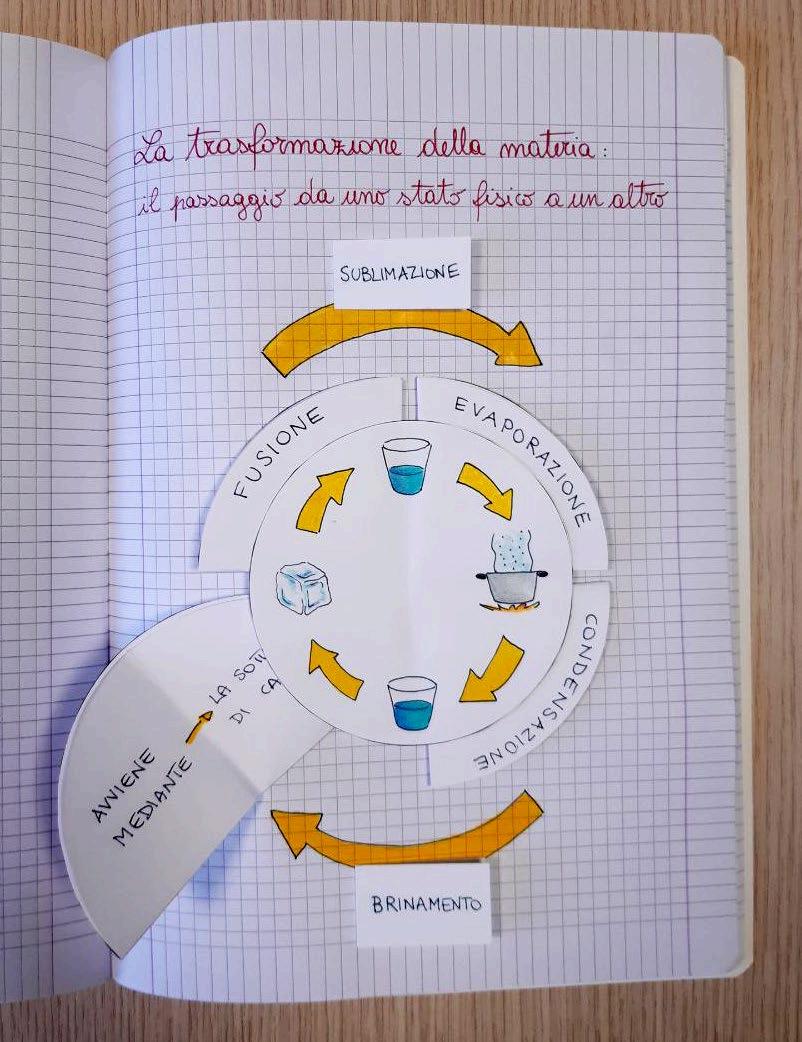 La trasformazione della materia:
il passaggio da uno stato fisico a un altro
SUBLIMAZIONE
FUSIONE
EVAPORAZIONE
CONDENSAZIONE
AVVIENE
MEDIANTE
LA
DI
BRINAMENTO